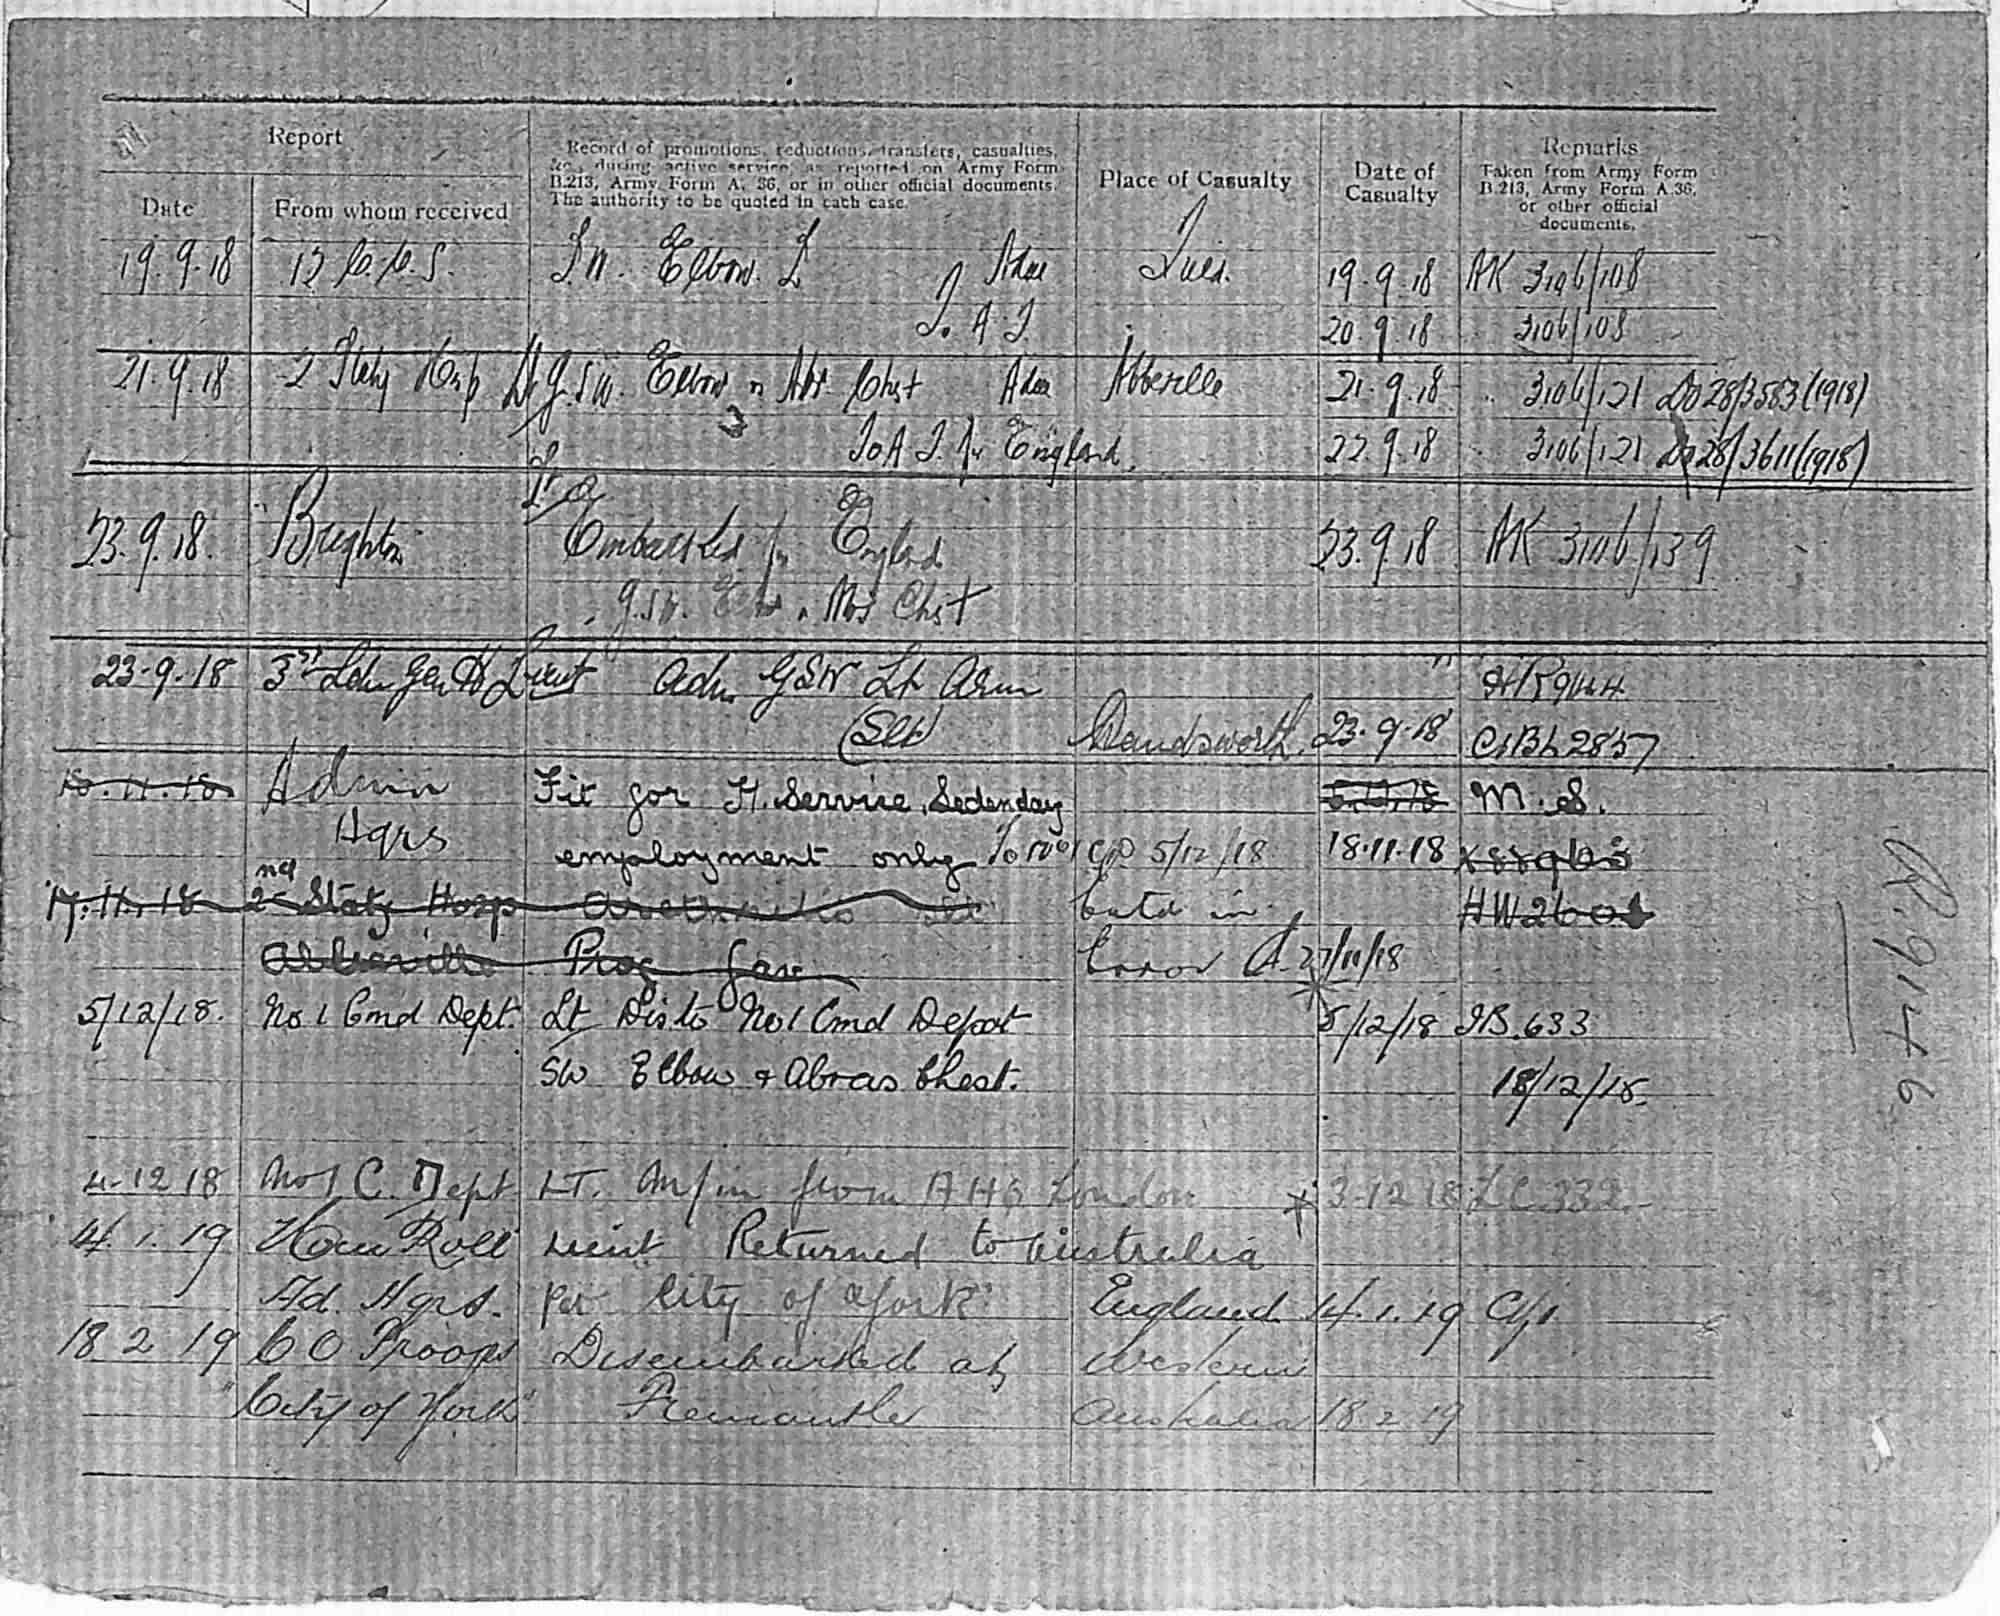 Report
Record of promotions, reductions, transfers, casualties, &c. during active service, as reported on Army Form B.213, Army Form A. 36, or in other official documents. The authority to be quoted in each case.
Place of Casualty
Date of Casualty
Remarks
Taken from Army Form B.213, Army Form A.36, or other official documents.
Date
From whom received
19.9.18 12 C.C.S. S.W. Elbow. L 19.9.18 AK 3106/108
20.9.18 3106/108
21.9.18 2 Staty Hosp Lt G.S.W. Elbow Abr. Chest Adm Abbeville 21.9.18 3106/121 Do 28/3583 (1918)
To A.T. for England. 22.9.18 3106/121 Do 28/3611 (1918)
23.9.18. Brighton Embarked for England 23.9.18 AK 3106/139
G.S.W. Elbow Abr Chest
23-9-18 3rd Ldn Gen H Lieut adm GSW Lt Arm
(Slt) Wandsworth. 23-9-18 2857
18.11.18 Admin Fit for H. Service, Sedenday M.S.
Hqrs employment only 5/12/18 18.11.18
17.11.18 2nd Staty Hosp Entd in HW2601
Abbeville Prog fav Error 27/11/18
5/12/18. No 1 Cmd Dept. Lt Dis to No 1 Cmd Depot 5/12/18 633
SW Elbow & Abras Chest. 18/12/18.
4-12 18 No 1 C. Dept LT. M/in from AHQ London 3-12 18 LC 332
14. 1. 19 Nom Roll Lieut Returned to Australia
Ad. Hqrs. per "City of York" England 14.1.19
18 2 19 CO Troops Disembarked at Western
"City of York" Fremantle Australia 18 2 19
R.9146